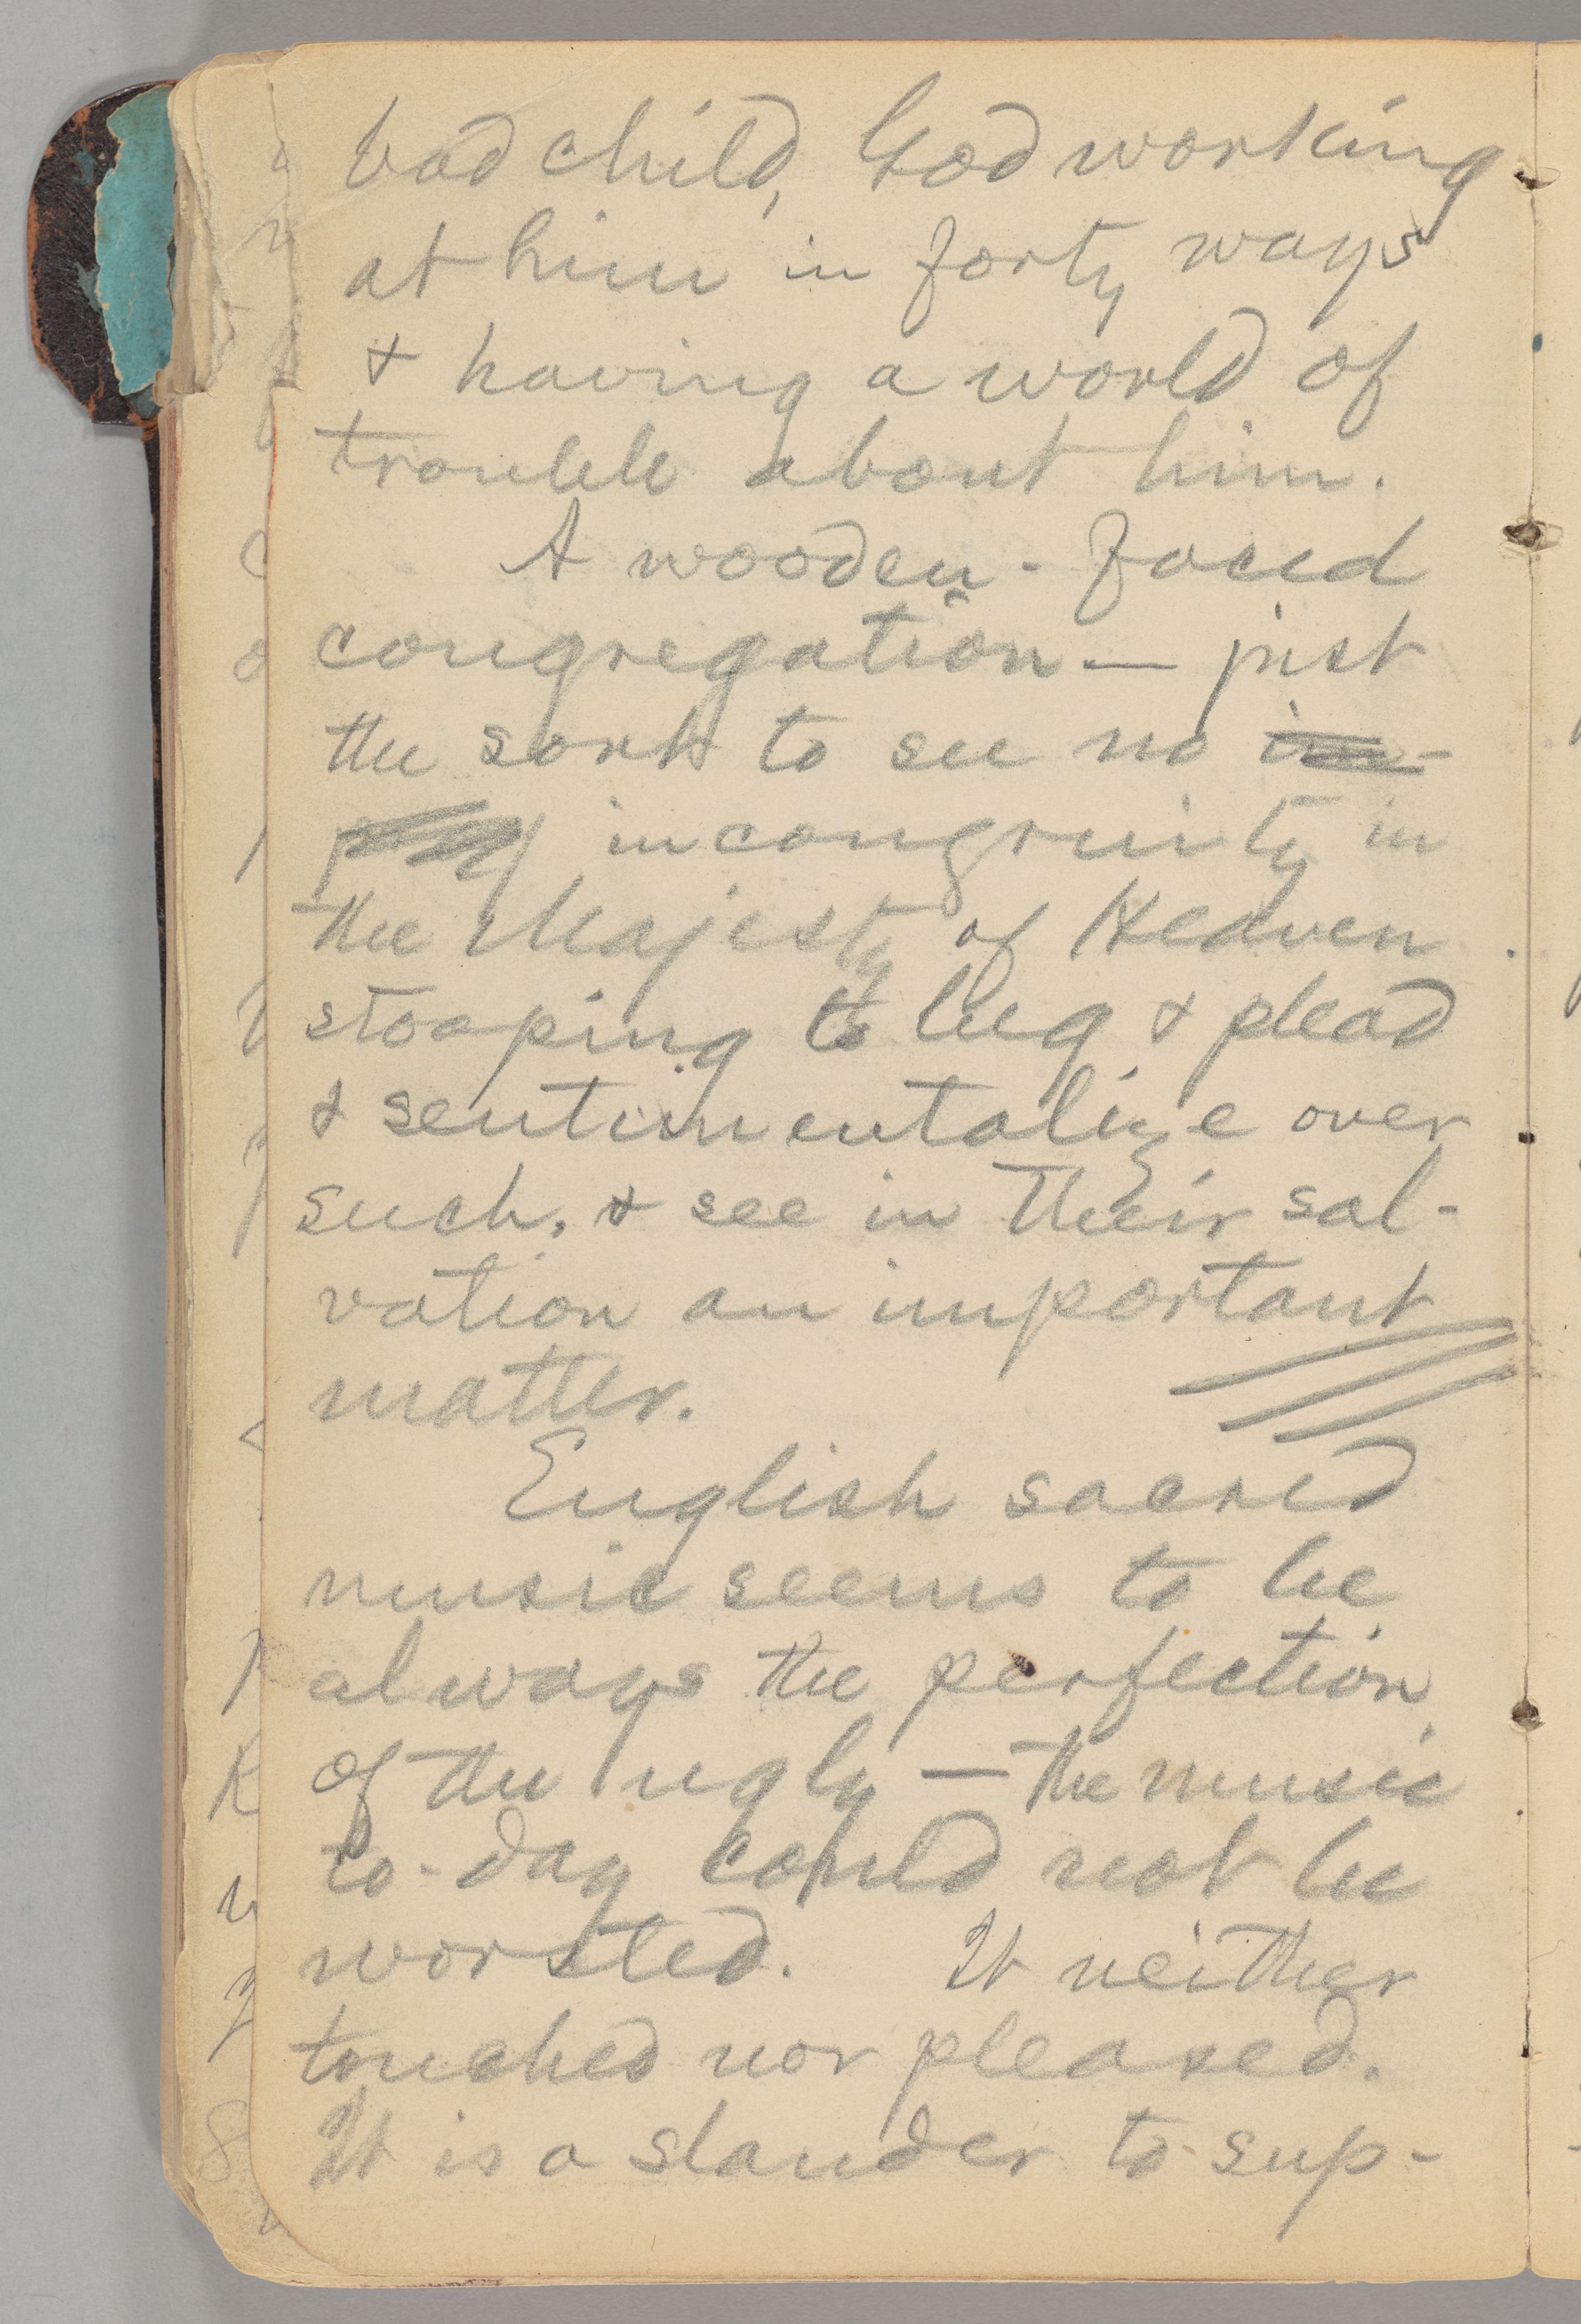 bad child, God working
at him in forty ways
& having a world of
trouble about him.
A wooden-faced
congregation — just
the sort to see no im-
incongruity in
the Majesty of Heaven
stooping to beg & plead
& sentimentalize over
such, & see in their sal-
vation an important
matter.
English sacred
music seems to be
always the perfection
of the ugly — the music
to-day could not be
worsted. It neither
touched nor pleased.
It is a slander to sup-